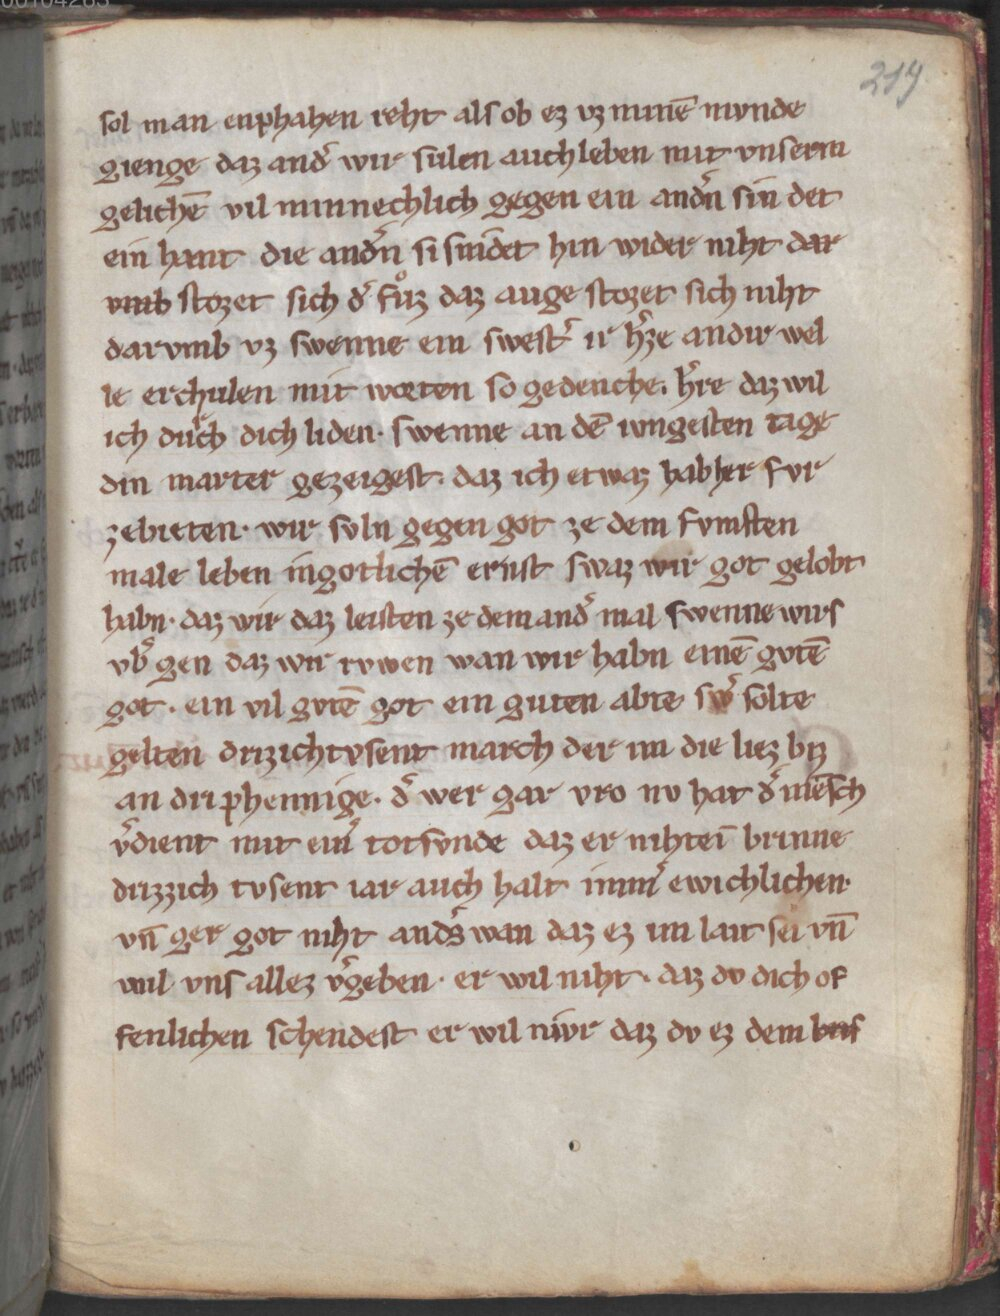 219
sol man enphahen reht als ob ez vz minē mvnde
gienge daz and̾ wir sulen auch leben mit vnserm
gelichē vil minnechlich gegen ein and̾n sin det
ein hant die and̾n si snidet hin wider niht dar
vmb stozet sich d̾ fůz daz auge stozet sich niht
darvmb vz swenne ein swest̾ ir h̾ze an dir wel
le erchulen mit worten so gedenche. h̾re daz wil
ich durch dich liden. swenne an dē iungesten tage
din marter gezeigest. daz ich etwaz hab her fvr
zebieten. wir svln gegen got ze dem fvmften
male leben in gotlichē ernst swaz wir got gelobt
habn. daz wir daz leisten ze dem and̾ mal swenne wirs
vb̾ gen daz wir rvwen wan wir habn einē gvtē
got. ein vil gvtē got ein guten abte sw̾ solte
gelten drizich tvsent march der im die liez biz
an dri phennige. d̾ wer gar vro nv hat d̾ mēsch
v̾dient mit ein̾ totsvnde daz er niht ei brinne
drizzich tvsent iar auch halt imm̾ ewichlichen.
vn̄ ger got niht and̾s wan daz ez im lait sei vn̄
wil vns allez v̾geben. er wil niht. daz dv dich of
fenlichen schendest er wil nivr daz dv ez dem